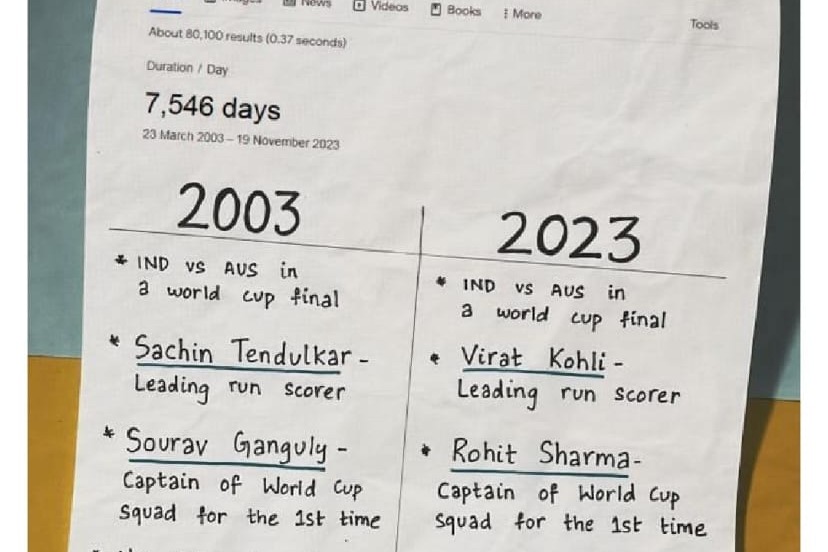 News Videos Books More
Tools
About 80,100 results (0.37 seconds)
Duration / Day
7,546 days
23 March 2003 – 19 November 2023
2003
* IND vs AUS in
a world cup final
* Sachin Tendulkar -
Leading run scorer
* Sourav Ganguly -
Captain of World Cup
squad for the 1st time
2023
* IND vs AUS in
a world cup final
* Virat Kohli -
Leading run scorer
* Rohit Sharma-
Captain of World Cup
squad for the 1st time